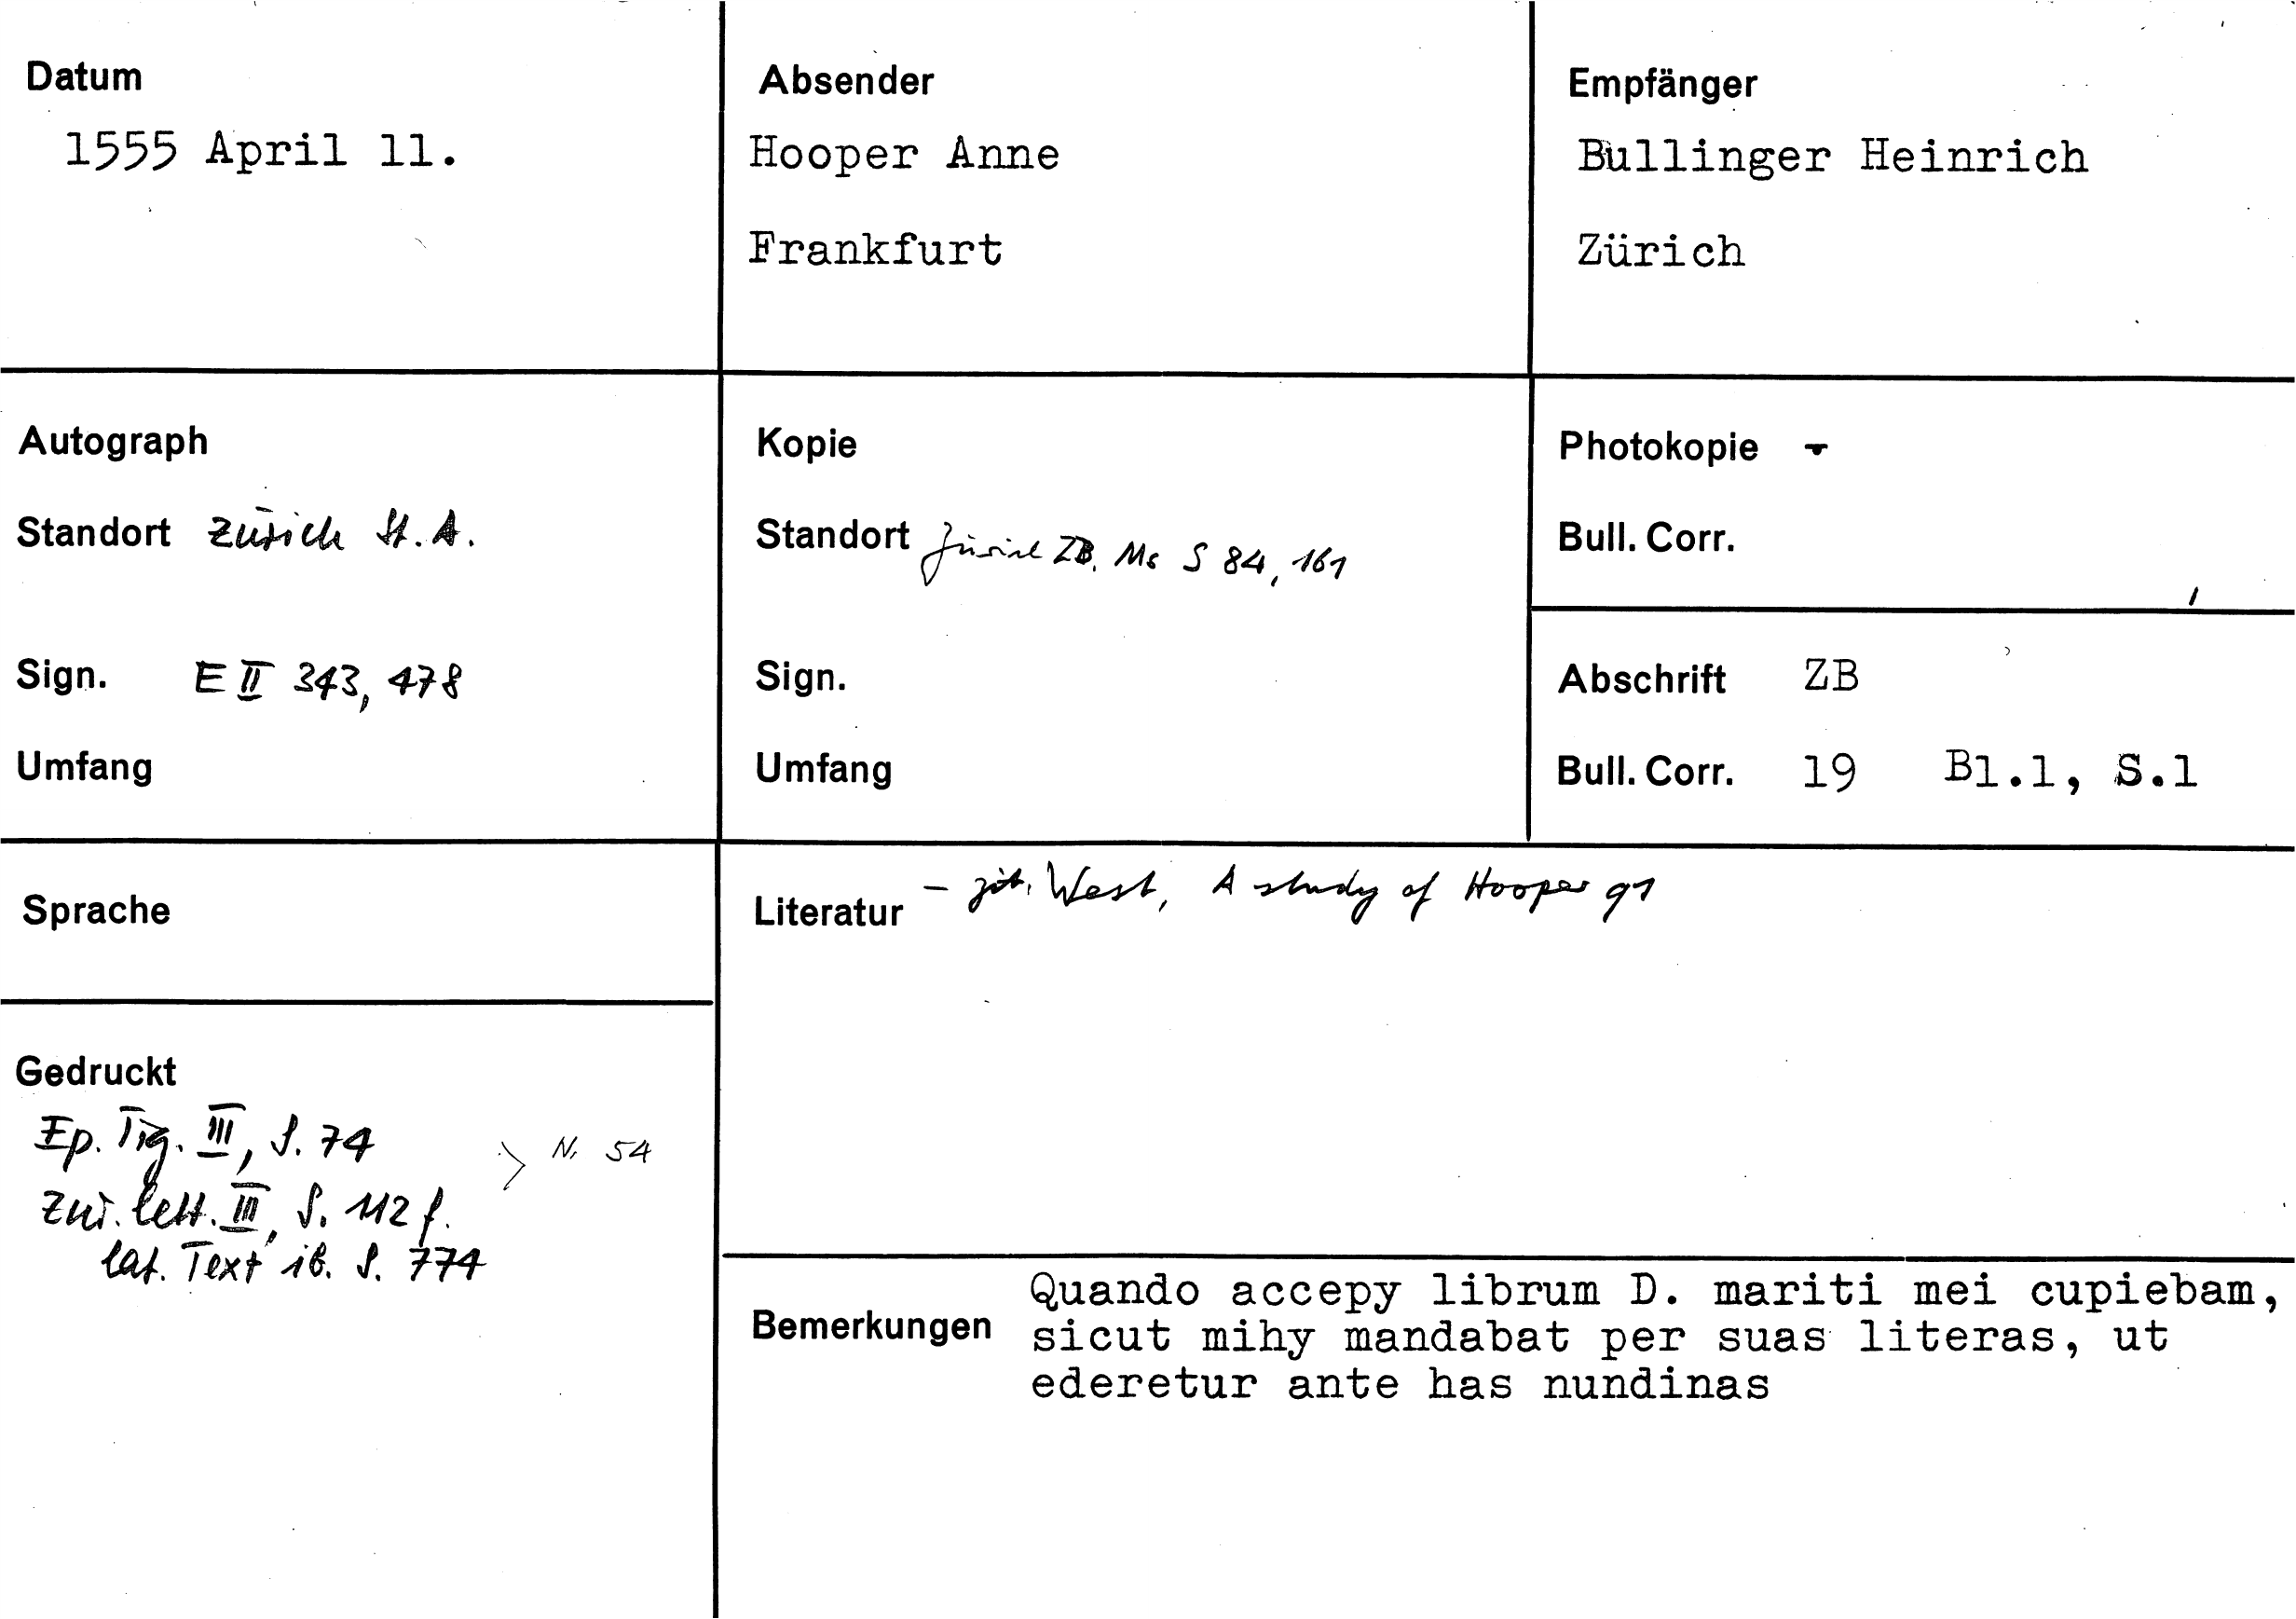 Datum
1555 April 11.
Absender
Hooper Anne
Frankfurt
Empfänger
Bullinger Heinrich
Zürich
Autograph
Standort Zürich St. A.
Sign. E II 343, 478
Umfang
Kopie
Standort Zürich ZB. Ms S 84, 161
Sign.
Umfang
Photokopie -
Bull. Corr.
Abschrift ZB
Bull. Corr. 19 Bl.1, S.1
Sprache
Literatur - zit. West, A study of Hooper 91
Gedruckt
Ep. Tig. III, S. 74
Zür. lett. III, S. 112 f.
> Nr 54
lat. Text ib. S. 774
Bemerkungen Quando accepy librum D. mariti mei cupiebam,
sicut mihy mandabat per suas literas, ut
ederetur ante has nundinas